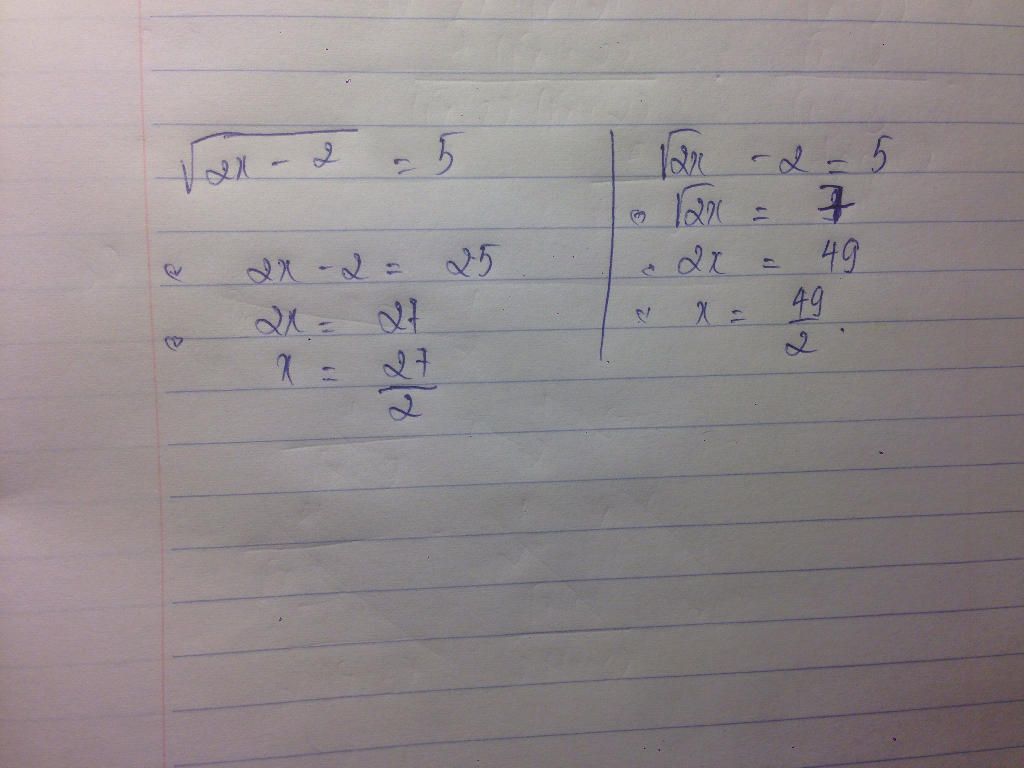 √(2x - 2) = 5
2x - 2 = 25
2x = 27
x = 27/2
√2x - 2 = 5
√2x = 7
2x = 49
x = 49/2.